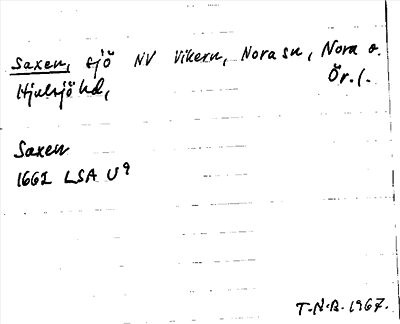 Saxen, sjö NV Vikern, Nora sn, Nora o.
Hjulsjö hd, Ör. l.
Saxen
1661 LSA U9
T.N.B. 1967.